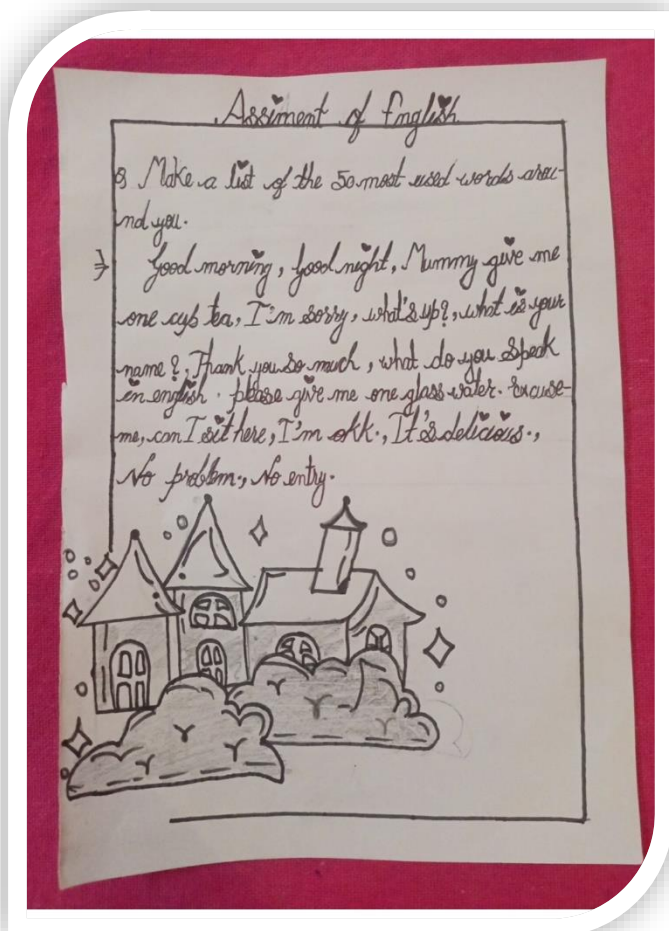 Assiment of English
Q Make a list of the 50 most used words arou-
nd you.
⇒ Good morning, Good night, Mummy give me
one cup tea, I'm sorry, what's up?, what is your
name?, Thank you so much, what do you speak
in english. please give me one glass water. Excuse-
me, can I sit here, I'm okk., It's delicious.,
No problem., No entry.